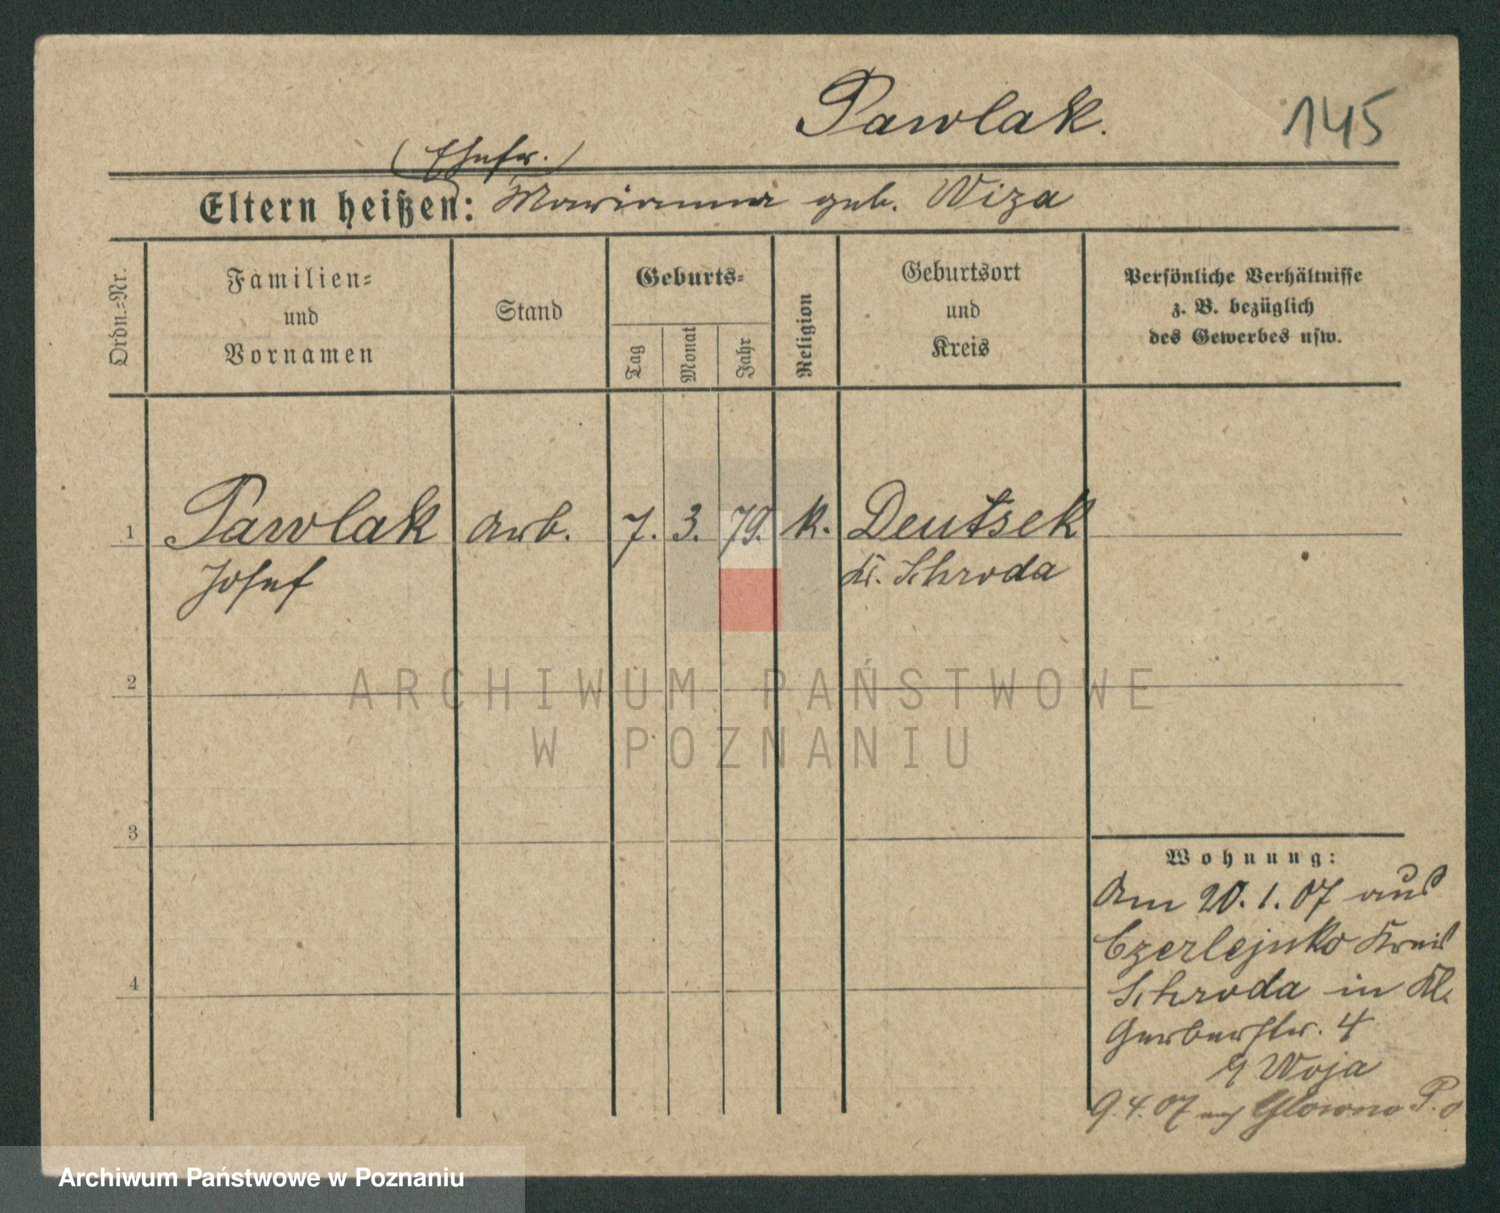 Pawlak.
145
(Ehefr.)
Eltern heißen: Marianna geb. Wiza
Ordn.-Nr.
Familien-
und
Vornamen
Stand
Geburts-
Tag
Monat
Jahr
Religion
Geburtsort
und
Kreis
Persönliche Verhältnisse
z. B. bezüglich
des Gewerbes usw.
1 Pawlak Arb. 7. 3. 79. k. Deutsek
Josef Kr. Schroda
ARCHIWUM PAŃSTWOWE
W POZNANIU
2
3
4
Wohnung:
Am 20.1.07 aus
Czerlejnko Kreis
Schroda in Kl.
Gerberstr. 4
Woja
9.4.07 Glowno P.
Archiwum Państwowe w Poznaniu